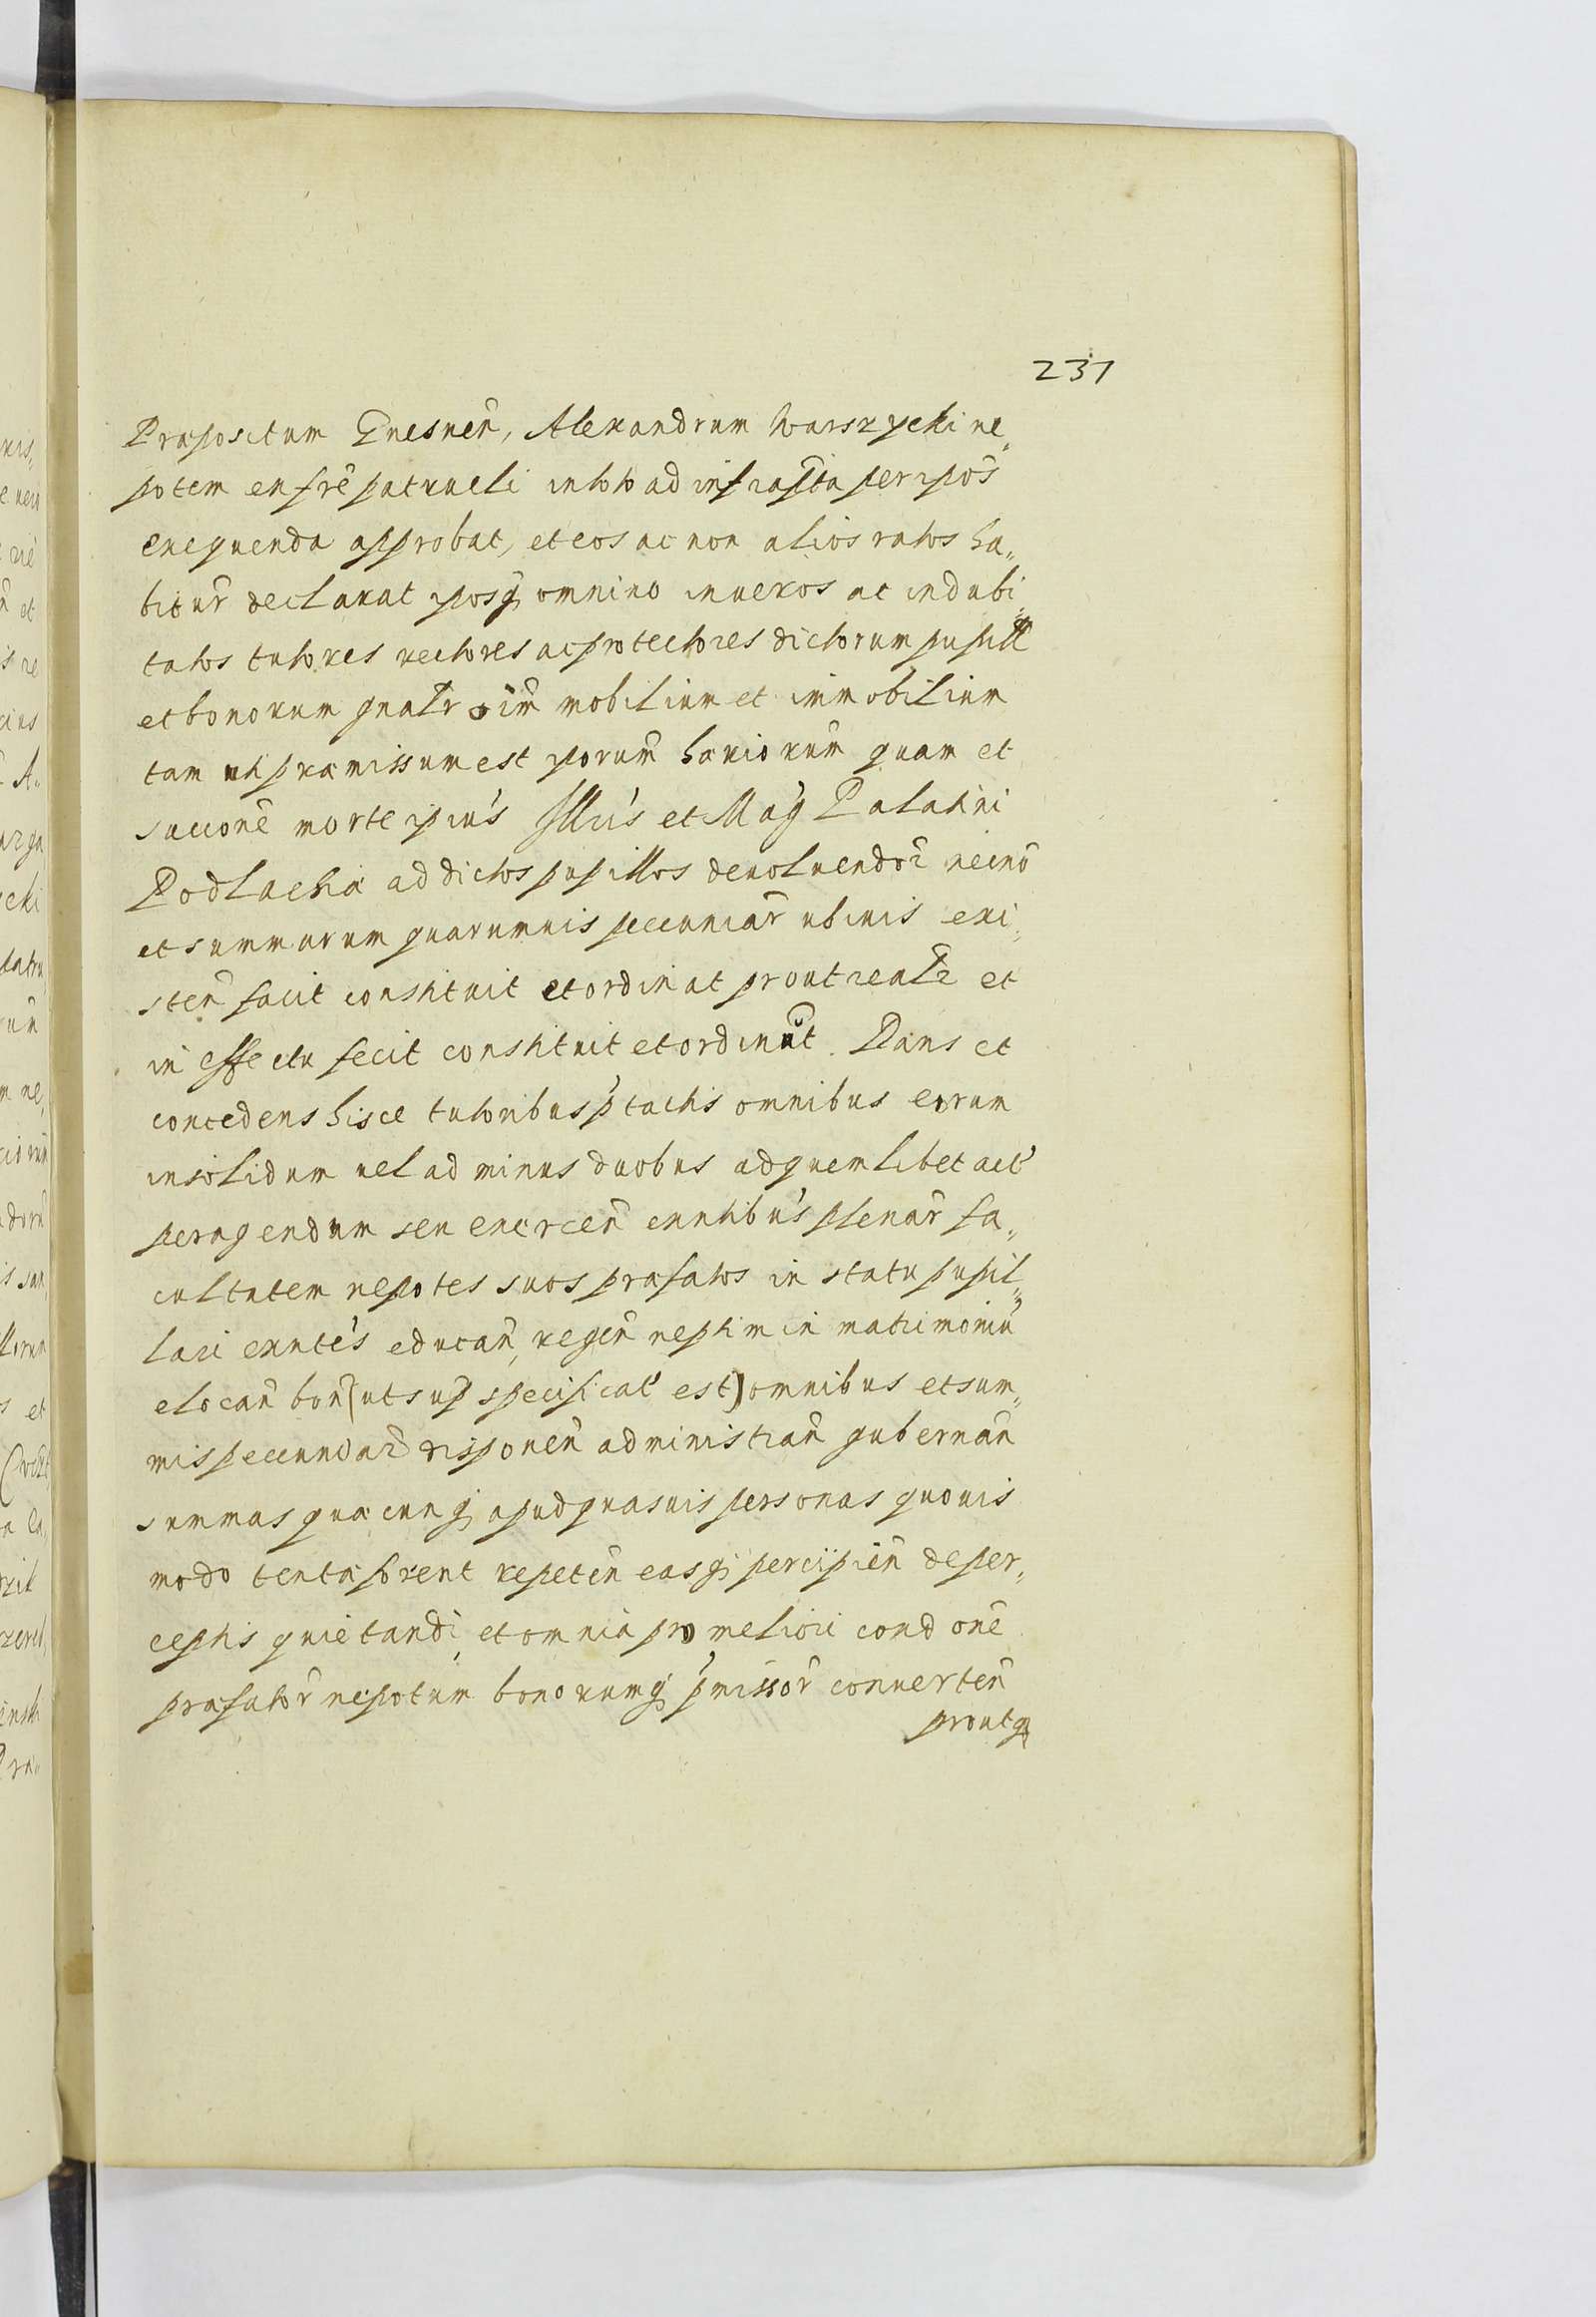 231
Præpositum Gnesneñ, Alexandrum Warszycki ne„
potem ex fre patrueli in toto ad infrascpta per ipos
exequenda approbat, et eos ac non alios ratos ha„
bitur declarat iposq omnino in veros ac indubi„
tatos tutores rectores ac protectores dictorum pupill
et bonorum gnalr oim mobilium et immobilium
tam uti præmissum est iporum hæriorum quam et
succione morte ipius Illris et Mag Palatini
Podlachiæ ad dictos pupillos devoluendor necno
et summarum quarumuis pecuniar ubiuis exi„
steñ facit constituit et ordinat prout realr et
in effectu fecit constituit et ordinavt. Dans et
concedens hisce tutoribus ptactis omnibus eorum
insolidum uel ad minus duobus ad quemlibet act
peragendum seu exerceñ exntibus plenar fa„
cultatem nepotes suos præfatos in statu pupil„
lari exntes educañ, regeñ neptim in matrimoniu
elocañ bon (ut sup specificat est) omnibus et sum„
mis pecuniar disponeñ administrañ gubernañ
summas quæcunq apud quasuis personas quouis
modo tentæ forent repeteñ easq percipieñ de per„
ceptis quietandi, et omnia pro meliori condone
præfator nepotum bonorumq pmissor conuerteñ
proutq